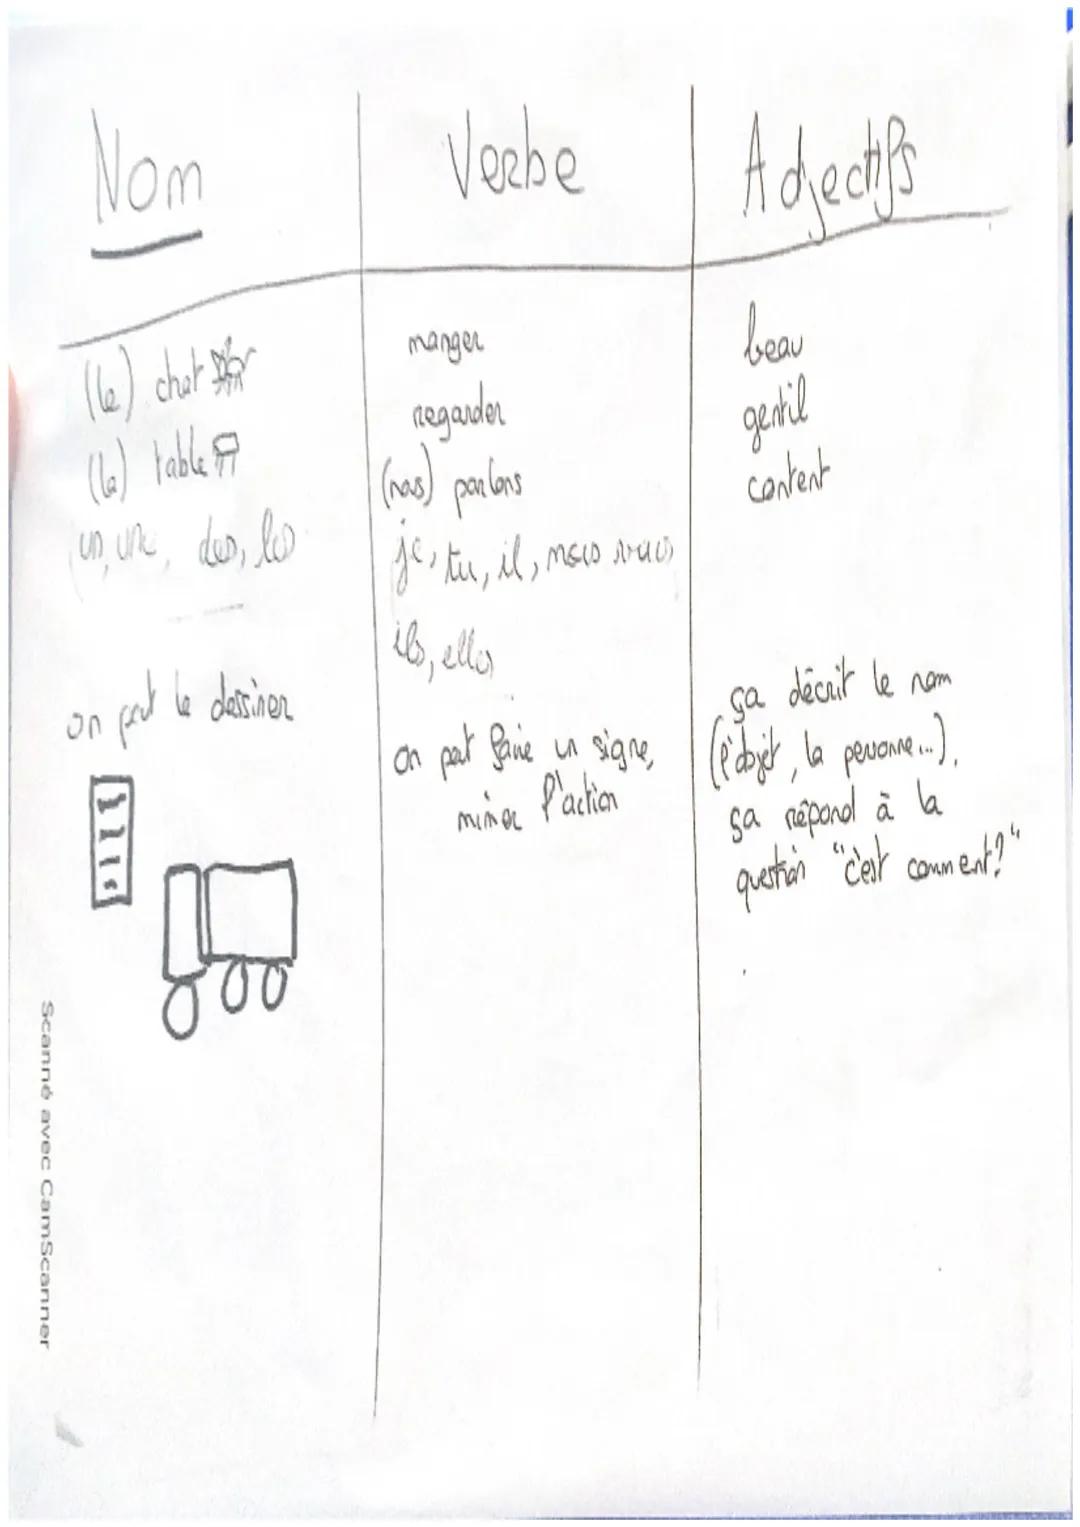 Nom
Verbe
Adjectifs
(le) chat
(la) table
un, une, des, les
on peut le dessiner
manger
regarder
(nous) parlons
je, tu, il, nous vous
ils, elles
on peut faire un signe,
mimer l'action
beau
gentil
content
ça décrit le nom
(l'objet, la personne...).
ça répond à la
question "c'est comment?"
Scanné avec CamScanner